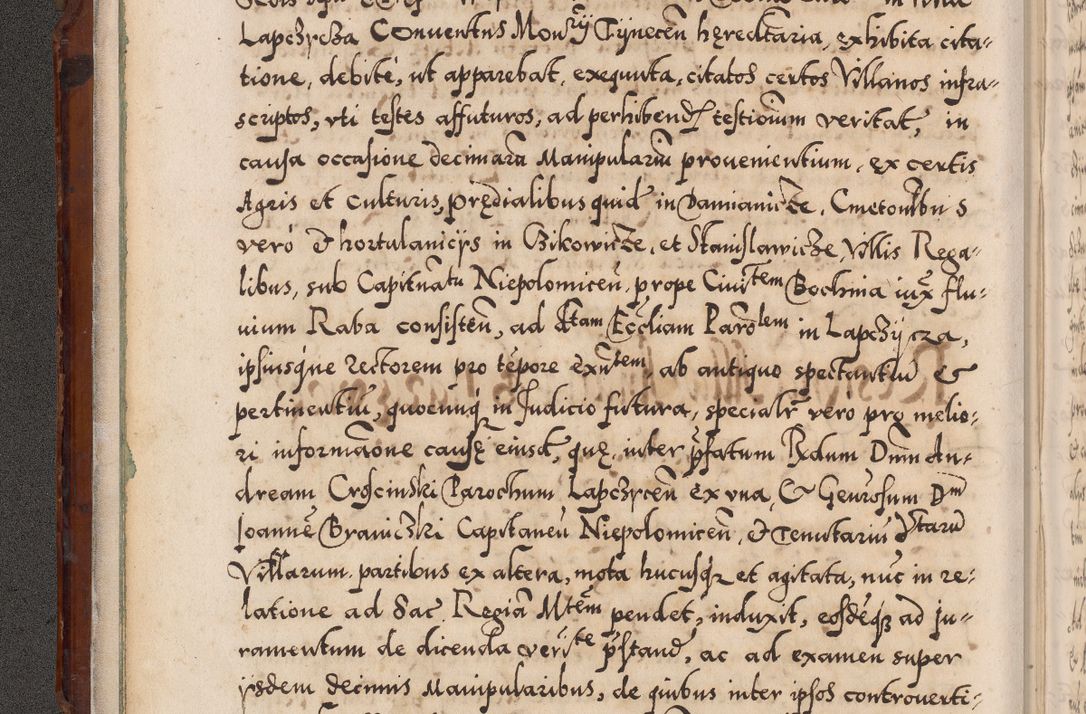 Lapczycza Conventus Monrÿ Tÿnecen̄ hęreditaria, exhibita cita-
tione, debitè, ut apparebat, exequuta, citatos certos Villanos infra-
scriptos, uti testes affuturos, ad perhibend testiōium veritat, in
causa occasione decimarū Manipulariū prouenientium, ex certis
Agris et culturis, prędialibus quid in Damianicze, Cmetonibus
verò & hortulanicijs in Czikowicze, et Stanislawicze, Villis Rega-
libus, sub Capitnatu Niepolomicen̄, prope Ciuitem Bochnia iux̄ flu-
uium Raba consisten̄, ad dtam Eccliam Parolem in Lapczÿcza,
ipsiusque rectorem pro tēpore exn̄tem, ab antiquo spectantiū &
pertinentiū, quocunq in Iudicio futura, specialr verò pro melio-
ri informāone causę eiusd, quę inter p̄fatum Rdum Dnm An-
dream Croscinski Parochum Lapczycen̄ ex una, & Genrosum Dm
Joannē Braniczki Capitaneū Niepolomicen̄, & Tenutariū dctarū
Villarum partibus ex altera, mota hucusq et agitata, nūc in re-
latione ad Sac Regiā Mtem pendet, induxit, eosdēq ad ju-
ramentum de dicenda verite p̄stand, ac ad examen super
ijsdem decimis Manipularibus, de quibus inter ipsos controverti-